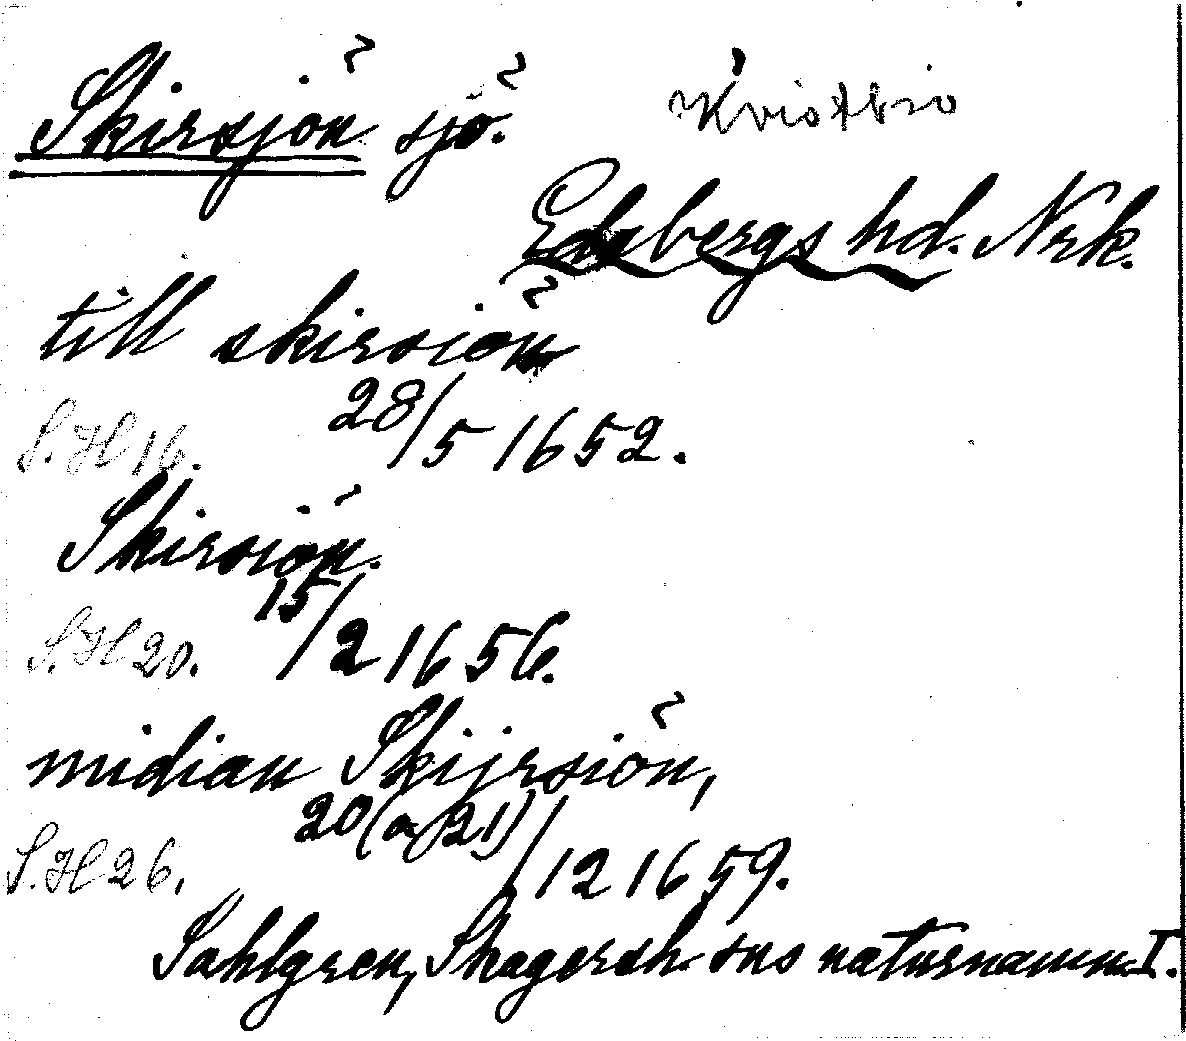 Skirsjön sjö. Kvistbro
Edsbergs hd. Nrk.
till skirsiön
S.H 16. 28/5 1652.
Skirsiön.
S.H 20. 15/2 1656.
midian Skijrsiön,
S.H 26. 20(a 21)/12 1659.
Sahlgren, Skagersh. sns naturnamn I.